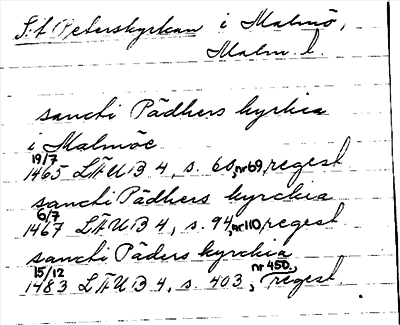 S:t Peterskyrkan i Malmö,
Malm. l.
sancti Pädhers kyrkia
i Malmöe
19/7
1465 LÄUB 4, s. 60, nr 69, regest
sancti Pädhers kyrckia
6/7
1467 LÄUB 4, s. 94, nr 110, regest
sancti Päders kyrckia
15/12
1483 LÄUB 4, s. 403, nr 450, regest.